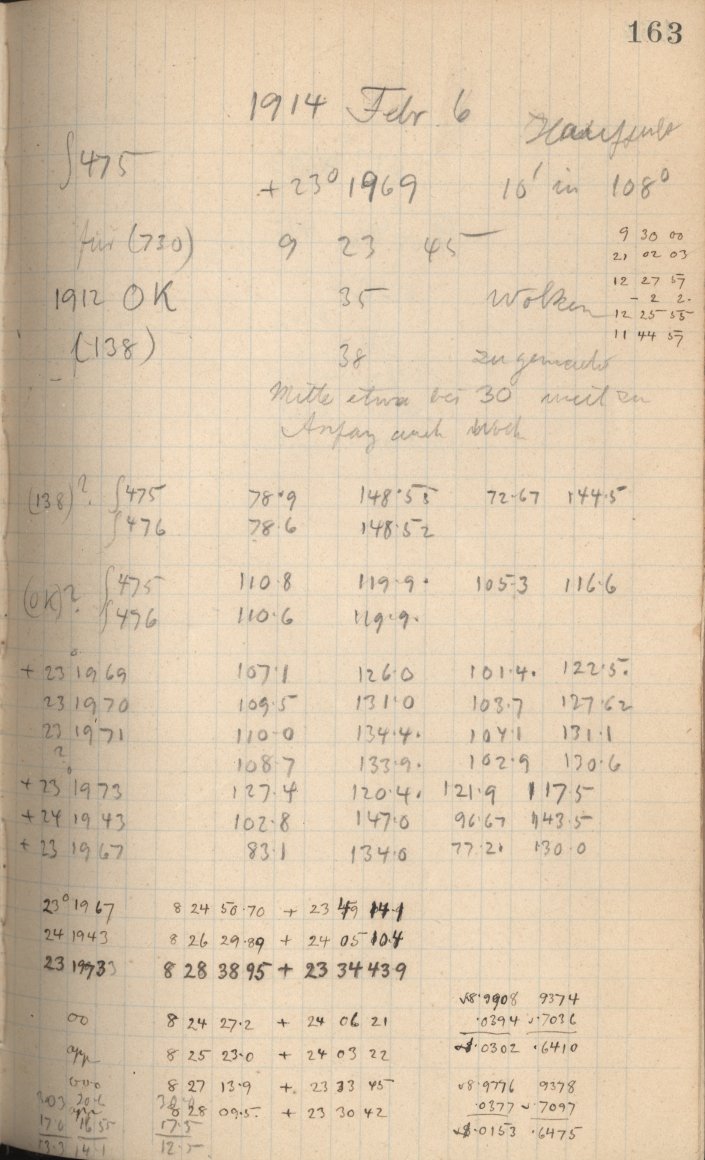 163
1914 Febr. 6
∫475
+ 23° 1969 10' in 108°
für (730) 9 23 45
9 30 00
21 02 03
1912 OK 35 Wolken
12 27 57
- 2 2.
12 25 55
11 44 57
(138) 38
Mitte etwa bei 30 weit zu
Anfang auch
(138)? ∫475 78.9 148.55 72.67 144.5
∫476 78.6 148.52
(OK)? ∫475 110.8 119.9. 105.3 116.6
∫476 110.6 119.9.
+ 23° 1969 107.1 126.0 101.4. 122.5.
23 1970 109.5 131.0 103.7 127.62
23 1971 110.0 134.4. 104.1 131.1
? 108.7 133.9. 102.9 130.6
+ 23° 1973 127.4 120.4. 121.9 117.5
+ 24 1943 102.8 147.0 96.67 143.5
+ 23 1967 83.1 134.0 77.21 130.0
23° 1967 8 24 50.70 + 23 49 14.1
24 1943 8 26 29.89 + 24 05 10.4
23 1973 8 28 38 95 + 23 34 43 9
8.9908 9374
00 8 24 27.2 + 24 06 21
.0394 .7036
.0302 .6410
app 8 25 23.0 + 24 03 22
000 8 27 13.9 + 23 33 45
8.9776 9378
app 8 28 09.5. + 23 30 42
.0377 .7097
17.5
12.5
13.3 14.1
.0153 .6475